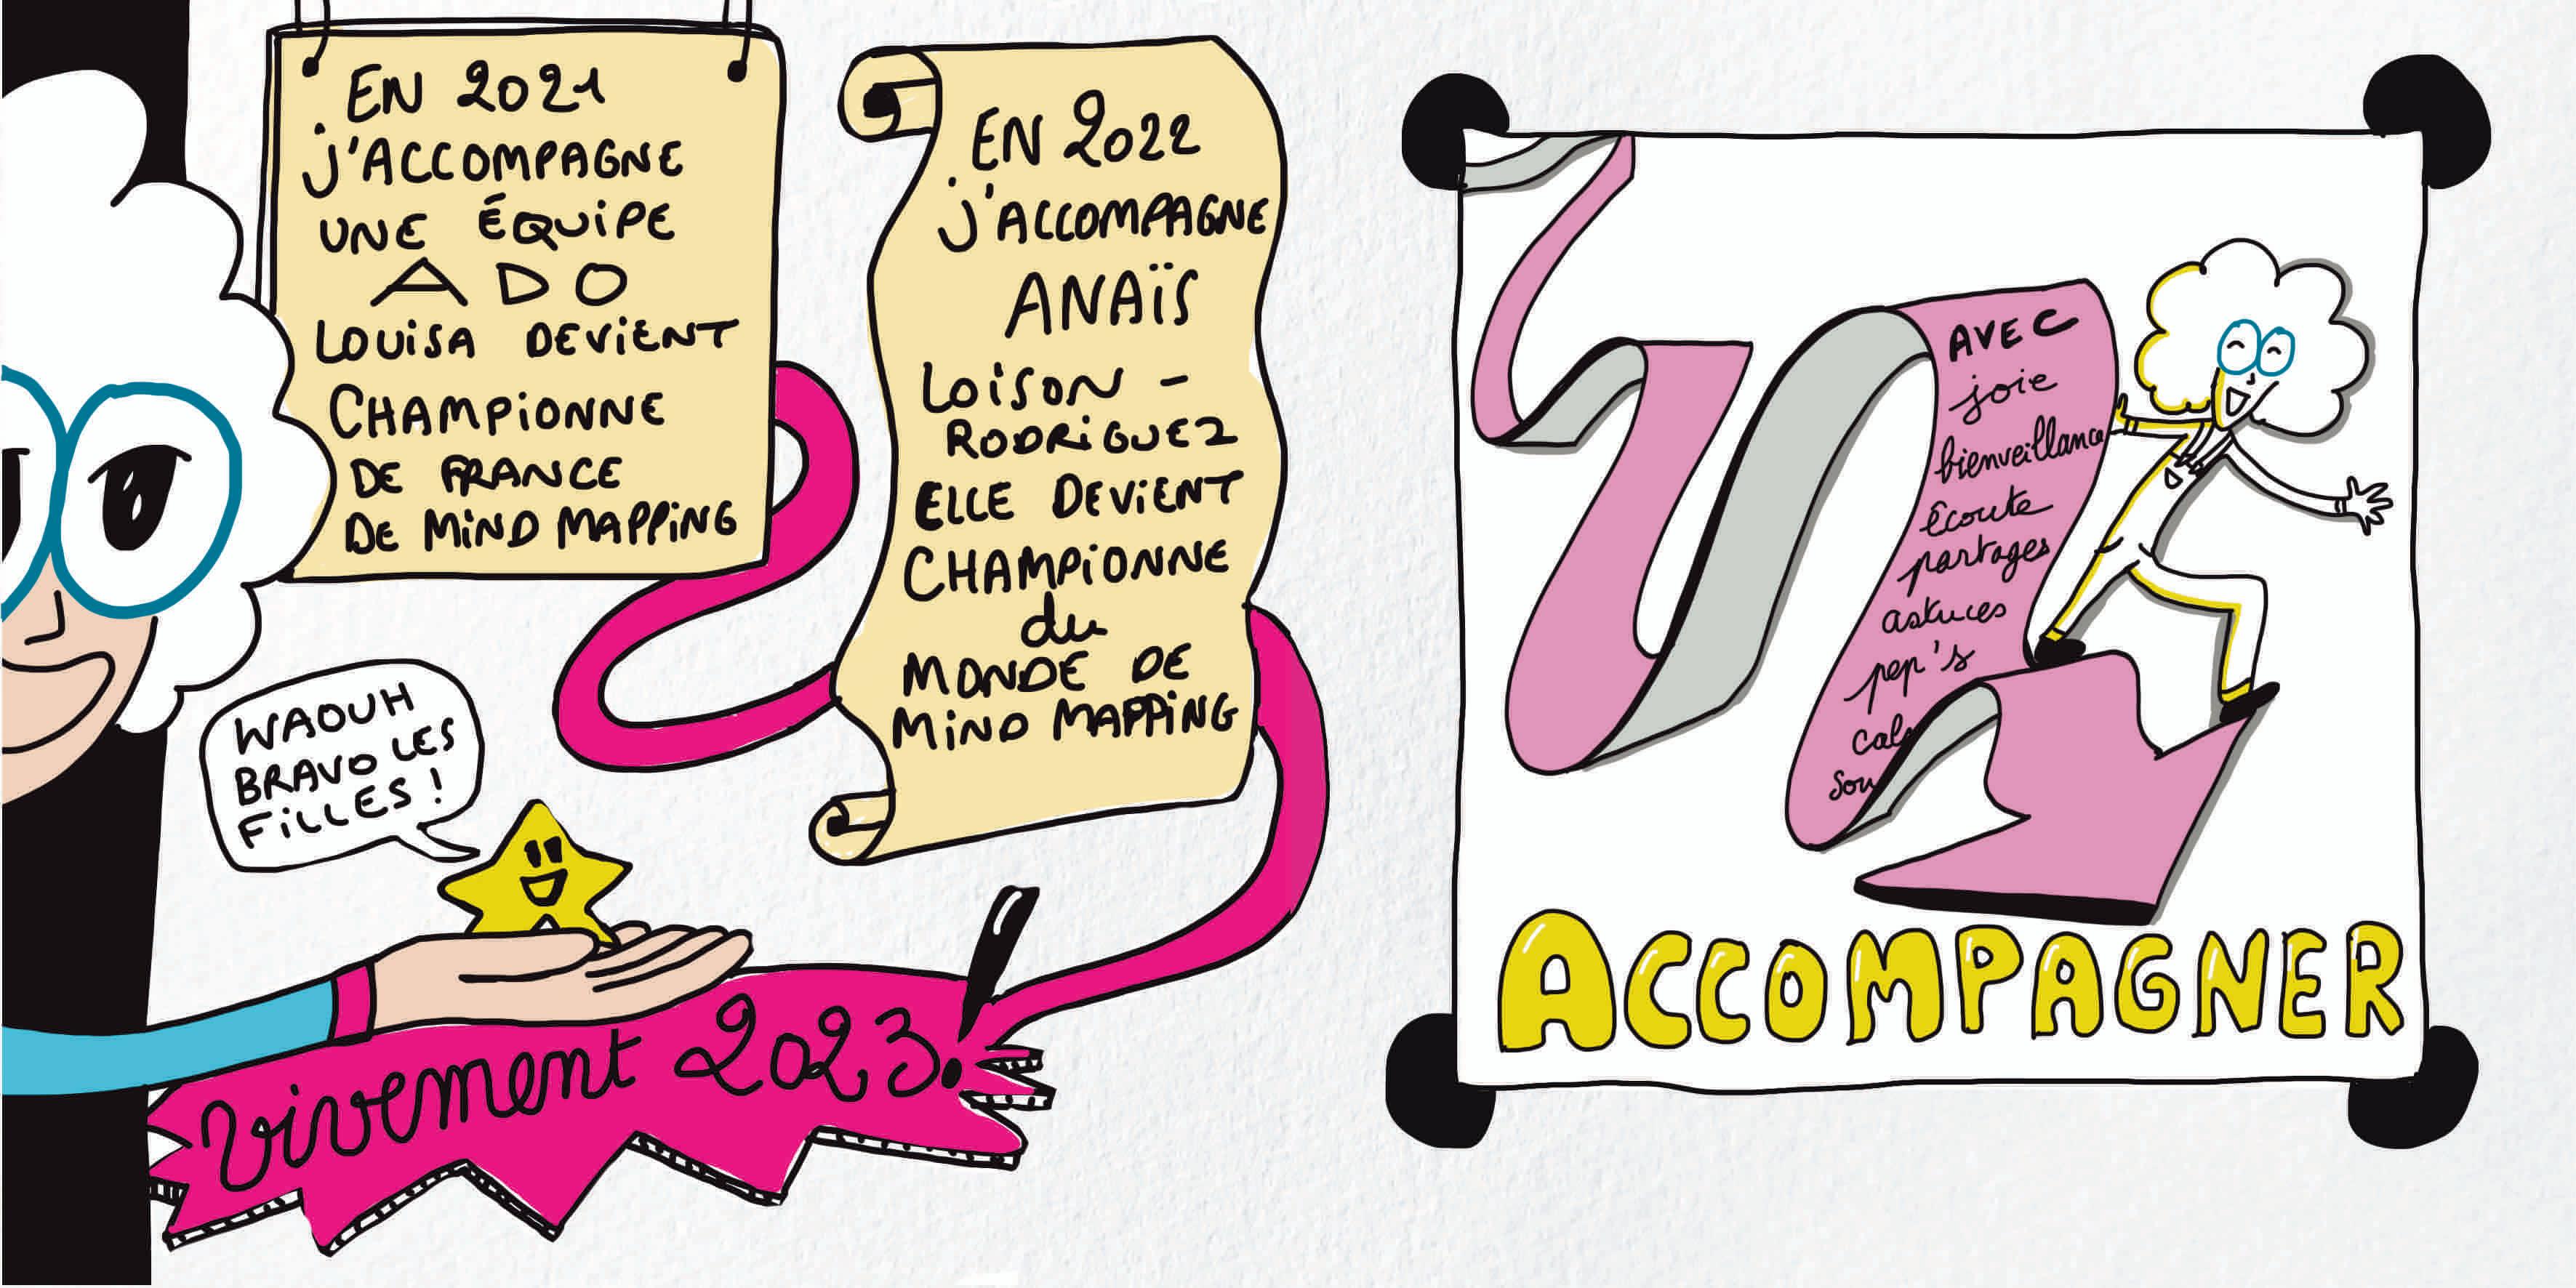 EN 2021
j'ACCOMPAGNE
UNE ÉQUIPE
ADO
LOUISA DEVIENT
CHAMPIONNE
DE FRANCE
DE MIND MAPPING
EN 2022
j'ACCOMPAGNE
ANAÏS
LOISON -
RODRIGUEZ
ELLE DEVIENT
CHAMPIONNE
du
MONDE DE
MIND MAPPING
WAOUH
BRAVO LES
FILLES !
vivement 2023!
AVEC
joie
bienveillance
écoute
partages
astuces
pep's
ACCOMPAGNER